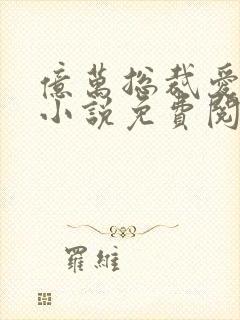 億萬總裁愛
小說免費閱
羅維